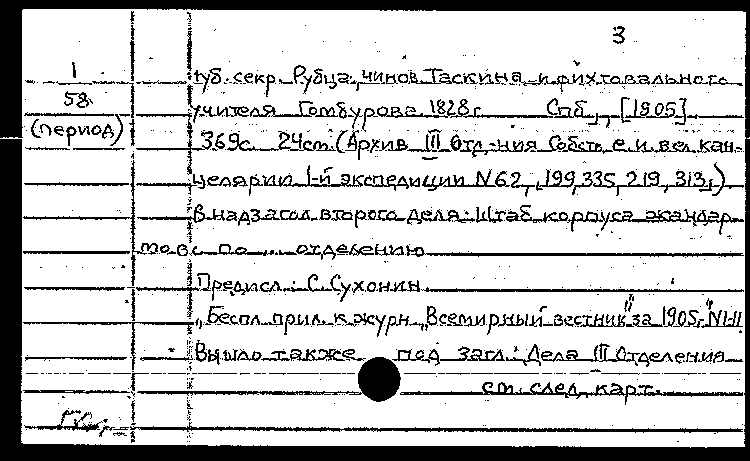 3
1
58
(период)
губ. секр. Рубца, чинов. Таскина и фихтовального
учителя Гомбурова. 1828 г. Спб., [1905].
369с. 24см. (Архив III Отд-ния Собств. е. и. вел. кан-
целярии 1-й экспедиции N 62, 199, 335, 219, 313,)
В надзагол. второго дела: Штаб корпуса жандар-
мов. По ... отделению
Предисл.: С. Сухонин.
„Беспл. прил. к журн. „Всемирный вестник" за 1905г." N I-II
Вышло также под загл.: Дела III Отделения
см. след. карт.